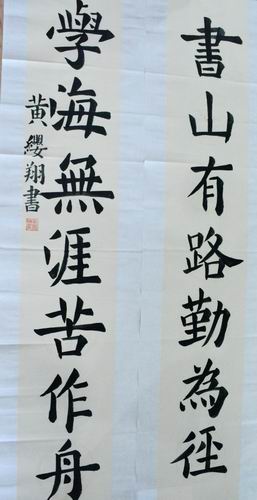 書山有路勤為徑
學海無涯苦作舟
黃纓翔書